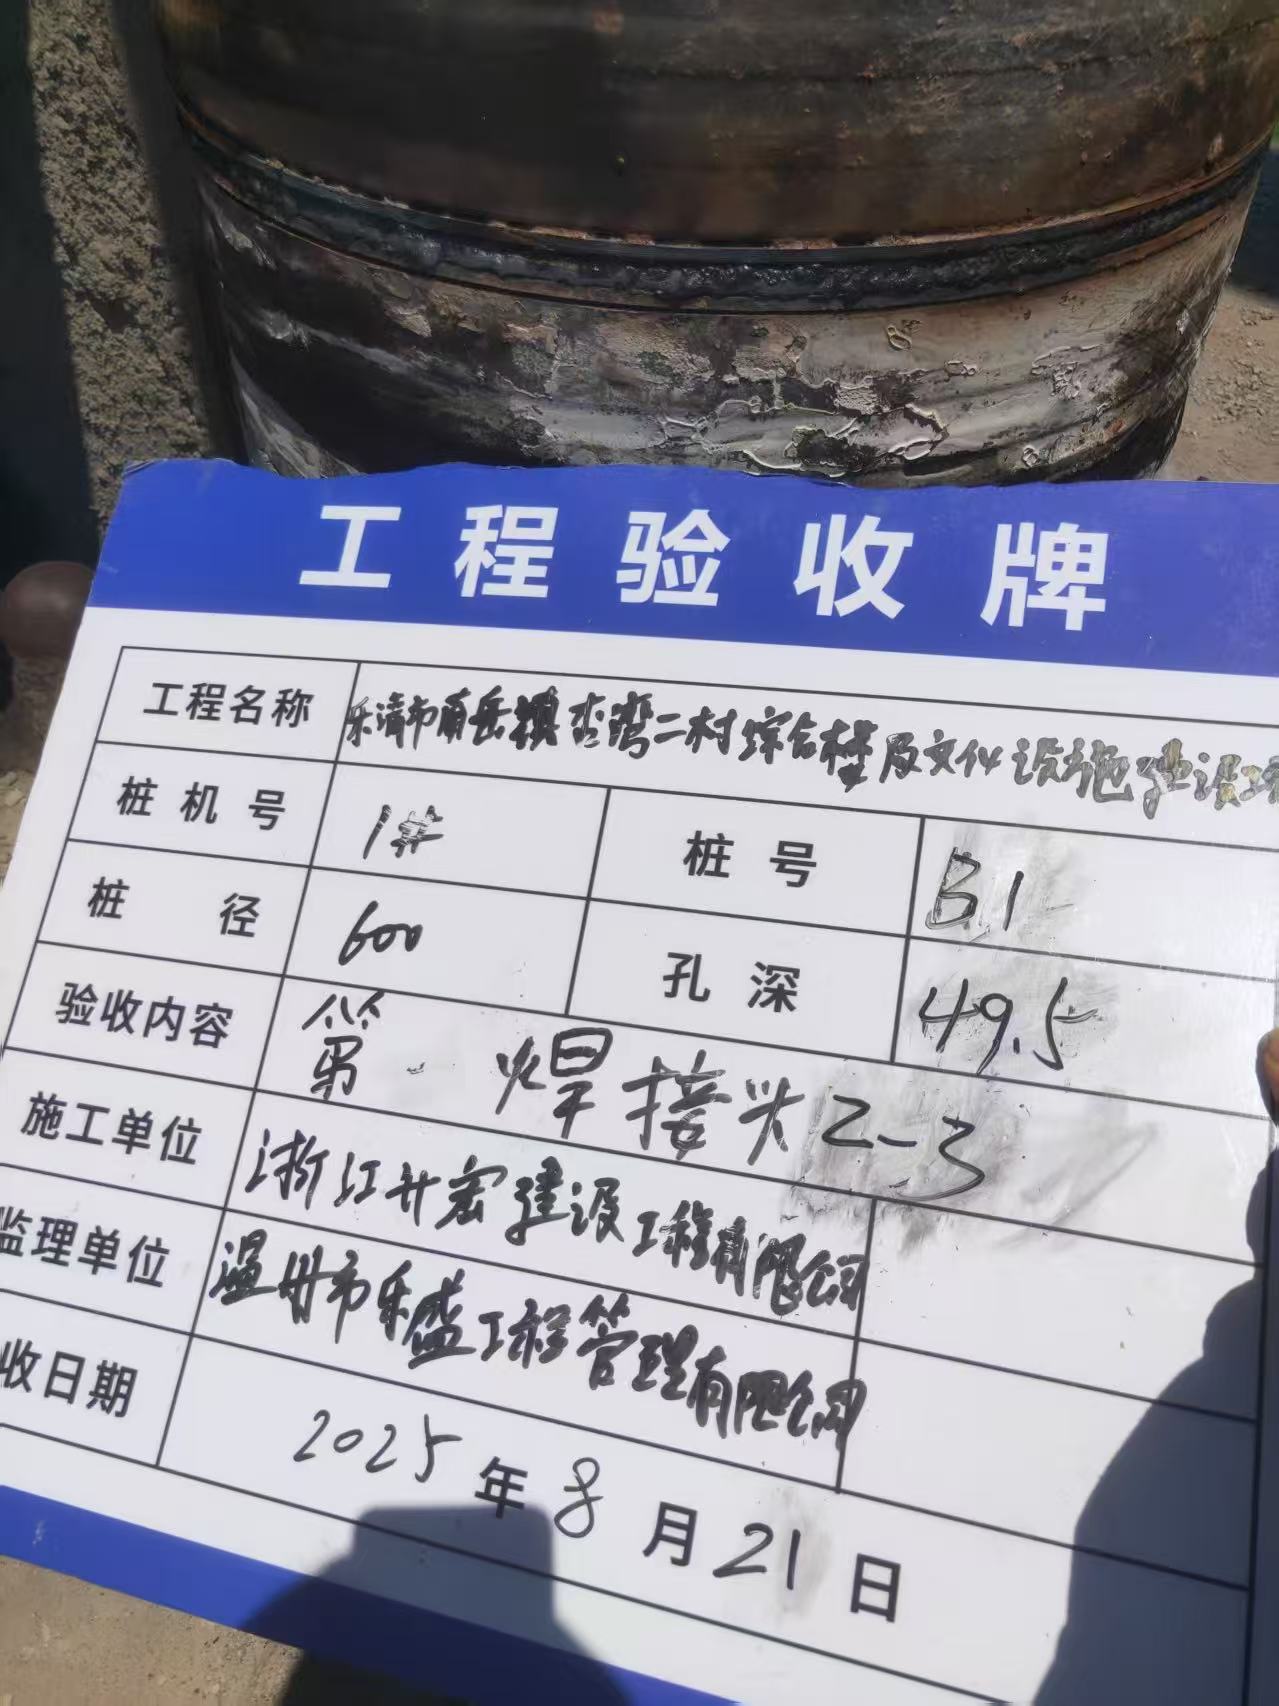 工程验收牌
工程名称 乐清市南岳镇杏湾二村综合楼及文化设施建设工程
桩机号 1# 桩号 B.1
桩径 600 孔深 49.5
验收内容 第 焊接头2-3
施工单位 浙江升宏建设工程有限公司
监理单位 温州市乐盛工程管理有限公司
收日期 2025年8月21日